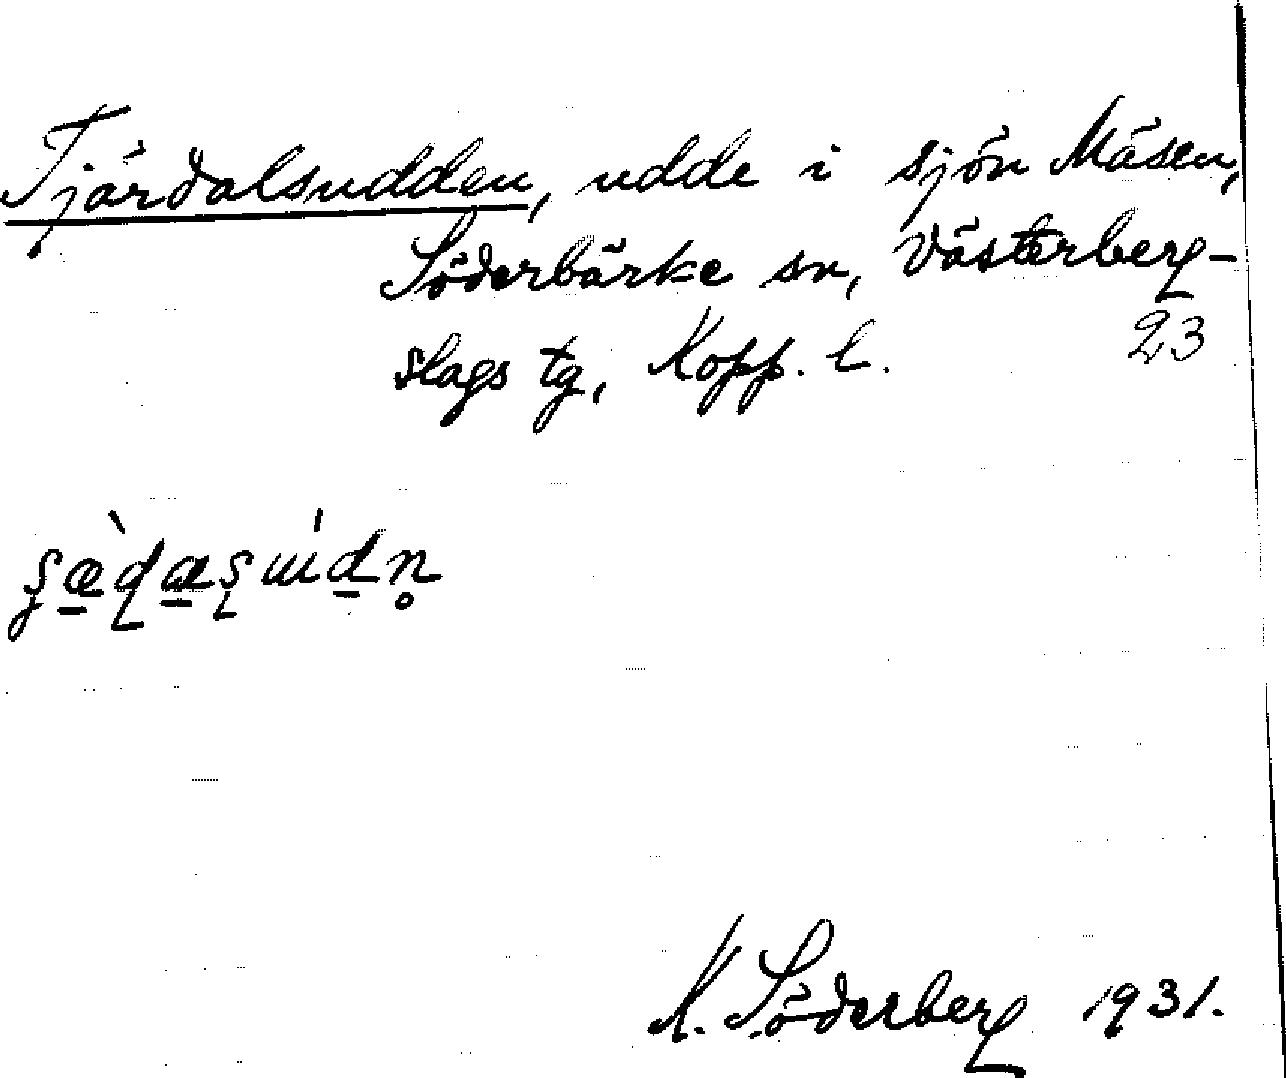 Tjärdalsudden, udde i sjön Mäsen,
Söderbärke sn, Västerberg-
slags tg, Kopp. l.
23
K. Söderberg 1931.